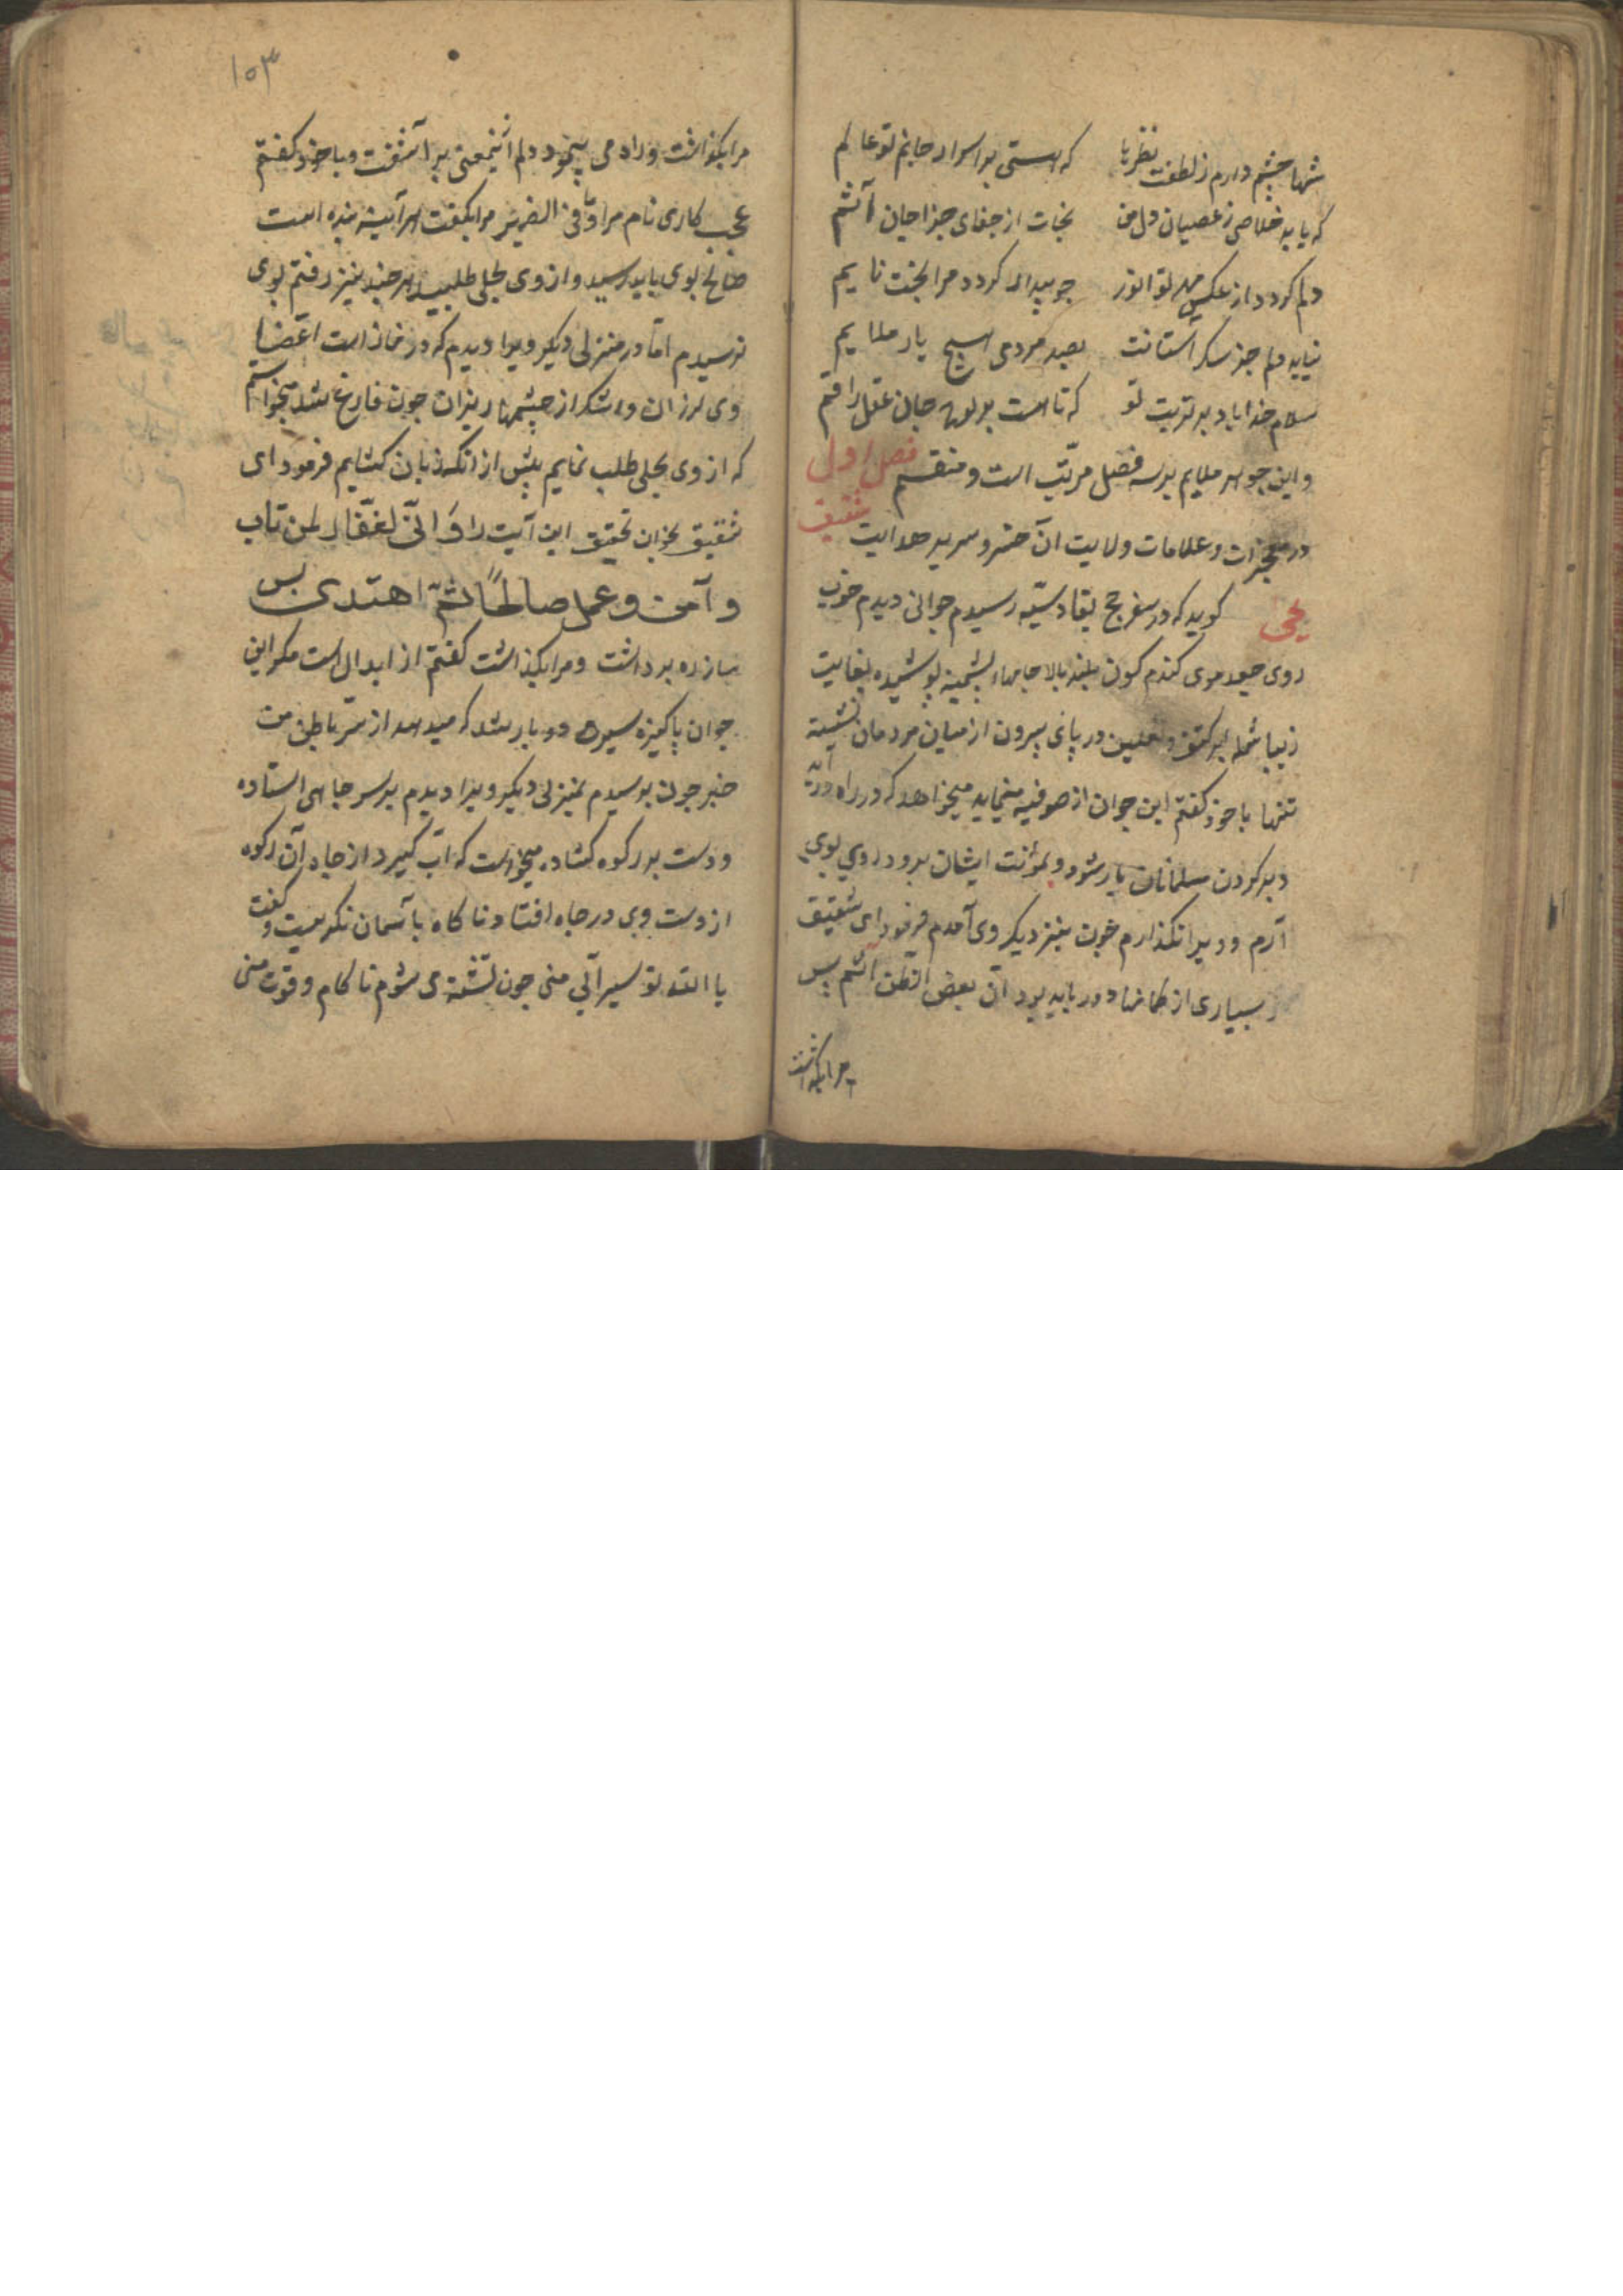 شها چشم دارم ز لطفت نظرها که هستی بر اسرار جانم تو عالم
که یابد خلاصی ز عصیان دل من نجات از جفای جزا جان آثم
دلم کردد از عکس مهر تو انور جو بیدار کردد مرا بخت نایم
نیابد دلم جز سکر استانت بصید مردمی هیچ یار ملایم
سلام خدا باد بر تربت تو که تا هست بر لوح جان عقل راقم
و این جوهر ملایم بر سه فصل مرتّب است و منقسم فصل اول
در معجزات و علامات ولایت آن خسرو سریر هدایت شقیق
یحیی کوید که در سفر حج بقادسیّه رسیدم جوانی دیدم خوب
روی جعد موی کندم کون بلند بالا جامهاء پشمینه پوشیده بغایت
زیبا شمله بر کتف و نعلین در پای بیرون از میان مردمان نشسته
تنها با خود کفتم این جوان از صوفیه مینماید میخواهد که در راه درآید
و بر کردن مسلمانان بار شود و بمؤنت ایشان برود روی بوی
آرم و ویرا نکذارم جون بنزدیک وی آمدم فرمود ای شقیق
بسیاری از کمانها دور باید بود ان بعض الظن اثم پس
مرا بکذاشت
۱۰۳
مرا بکذاشت و راه می پیمود دلم ازینمعنی بر اشفت و با خود کفتم
عجب کاری نام مرا و ما فی الضمیر مرا بکفت هرآینه بنده است
صالح بوی باید رسید و از وی بحلی طلبید هر چند تیز رفتم بوی
نرسیدم امّا در منزلی دیکر ویرا دیدم که در نماز است اعضا
وی لرزان و اشک از چشمها ریزان جون فارغ شد میخواستم
که از وی بحلی طلب نمایم پیش از انکه زبان کشایم فرمود ای
شقیق بخوان تحقیق این آیت را وَ انّی لغفّار لمن تاب
و آمن و عمل صالحًا ثمّ اهتدی پس
باز ره برداشت و مرا بکذاشت کفتم از ابدال است مکر این
جوان پاکیزه سیره دو بار شد که میدهد از سرّ باطن من
خبر جون برسیدم بمنزلی دیکر ویرا دیدم بر سر جاهی استاده
و دست بر رکوه کشاده میخواست که آب کیرد از جاه آن رکوه
از دست وی در جاه افتاد ناکاه بآسمان نکریست و کفت
یا الله تو سیرآبی منی جون تشنه می شوم ناکام و قوت منی